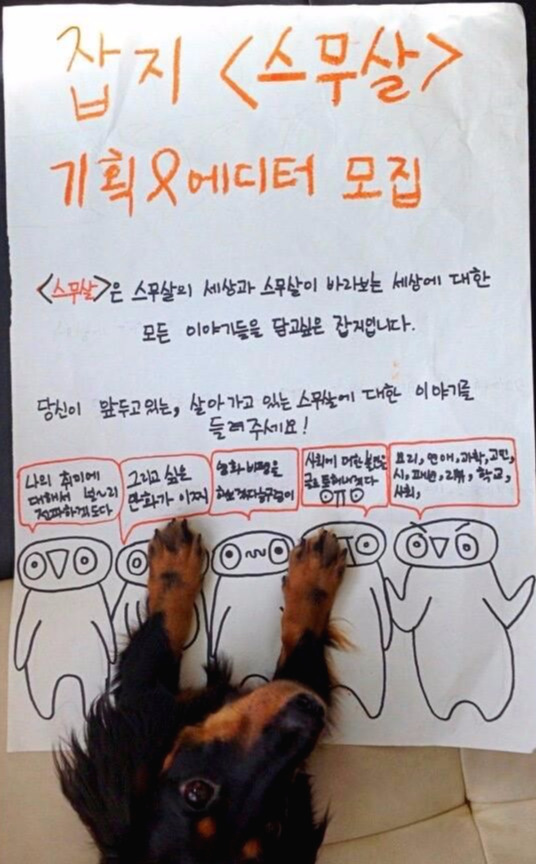 잡지 <스무살>
기획&에디터 모집
<스무살>은 스무살의 세상과 스무살이 바라보는 세상에 대한
모든 이야기들을 담고싶은 잡지입니다.
당신이 앞두고있는, 살아가고 있는 스무살에 대한 이야기를
들려주세요!
나의 취미에
대해서 널~리
전파하겠도다
그리고 싶은
만화가 이찌
영화 비평을
하고
사회에 대한 불만을
글로 통해내겠다
요리, 연애, 과학, 고민,
시, 패션, 리뷰, 학교,
사회,